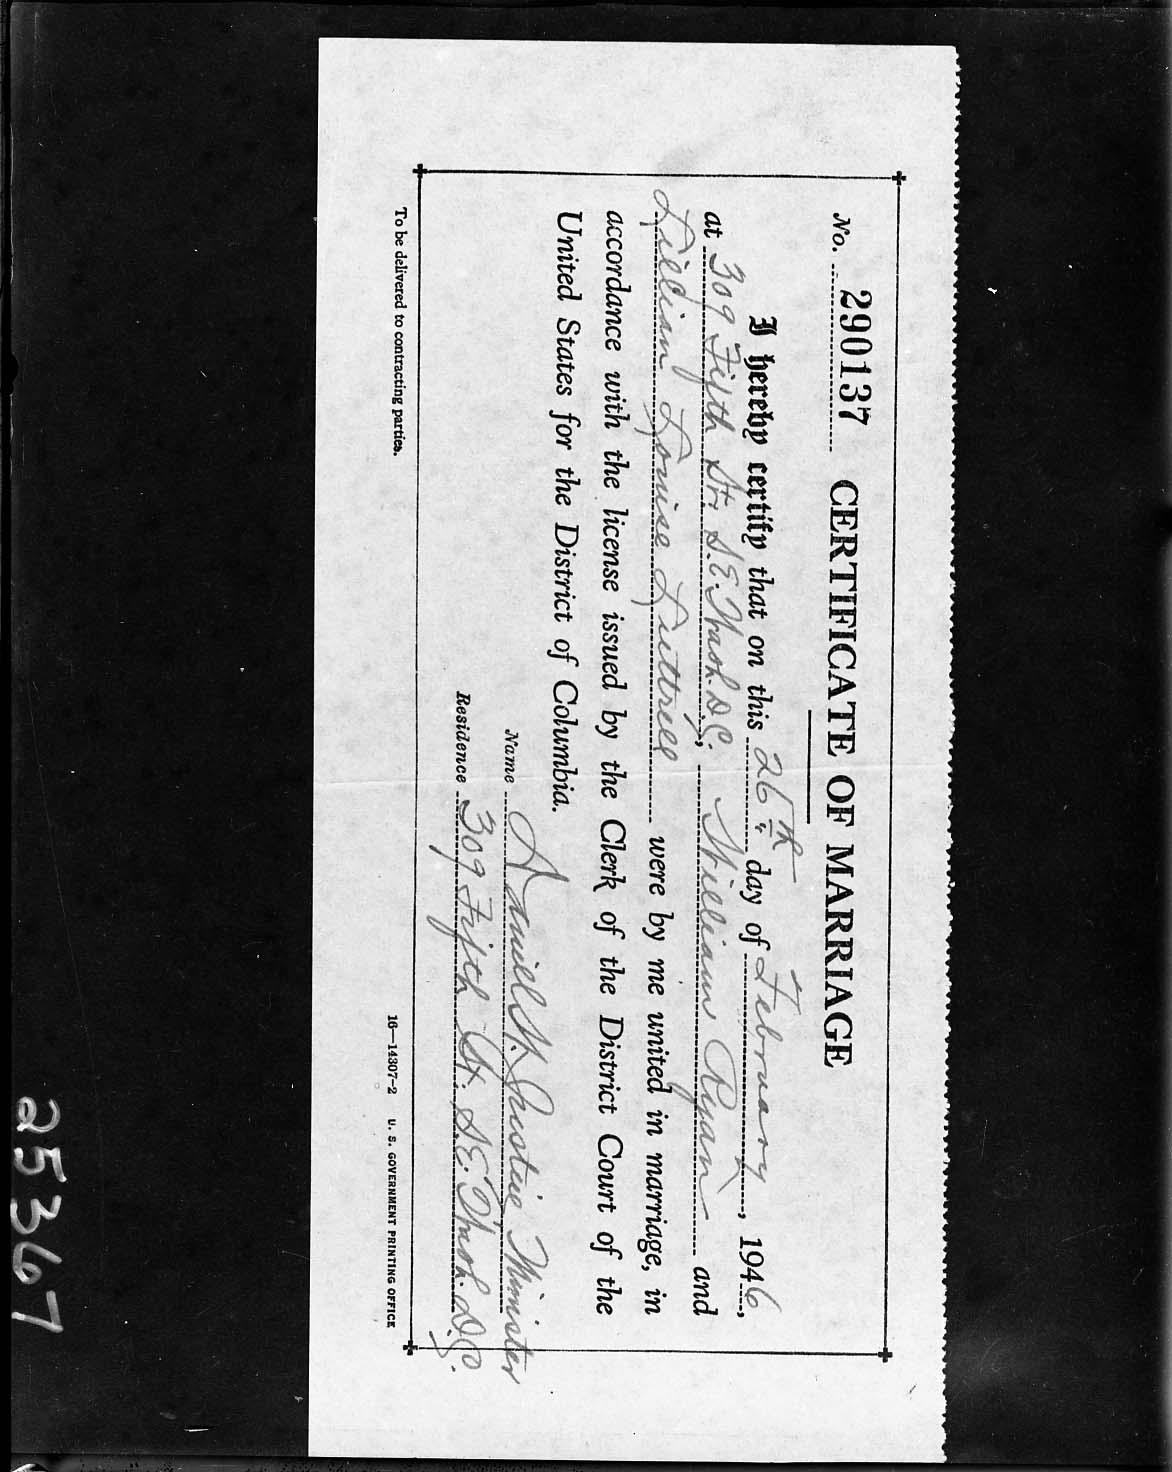 No. 290137 CERTIFICATE OF MARRIAGE
I hereby certify that on this 26th day of February, 1946,
at 309 Fifth St. S.E. Wash. D.C., William Ryan and
Lillian Louise Luttrell were by me united in marriage, in
accordance with the license issued by the Clerk of the District Court of the
United States for the District of Columbia.
Name H. Justice Minister
Residence 309 Fifth St. S.E. Wash. D.C.
To be delivered to contracting parties. 16—14307-2 U. S. GOVERNMENT PRINTING OFFICE
25367